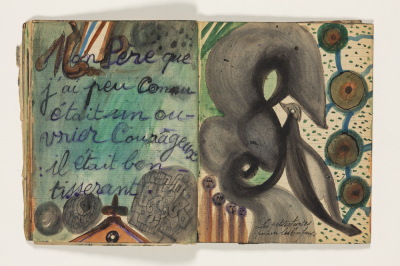 Mon Père que
j'ai peu Connu
était un ou-
vrier Courageux
: il était bon
tisserant